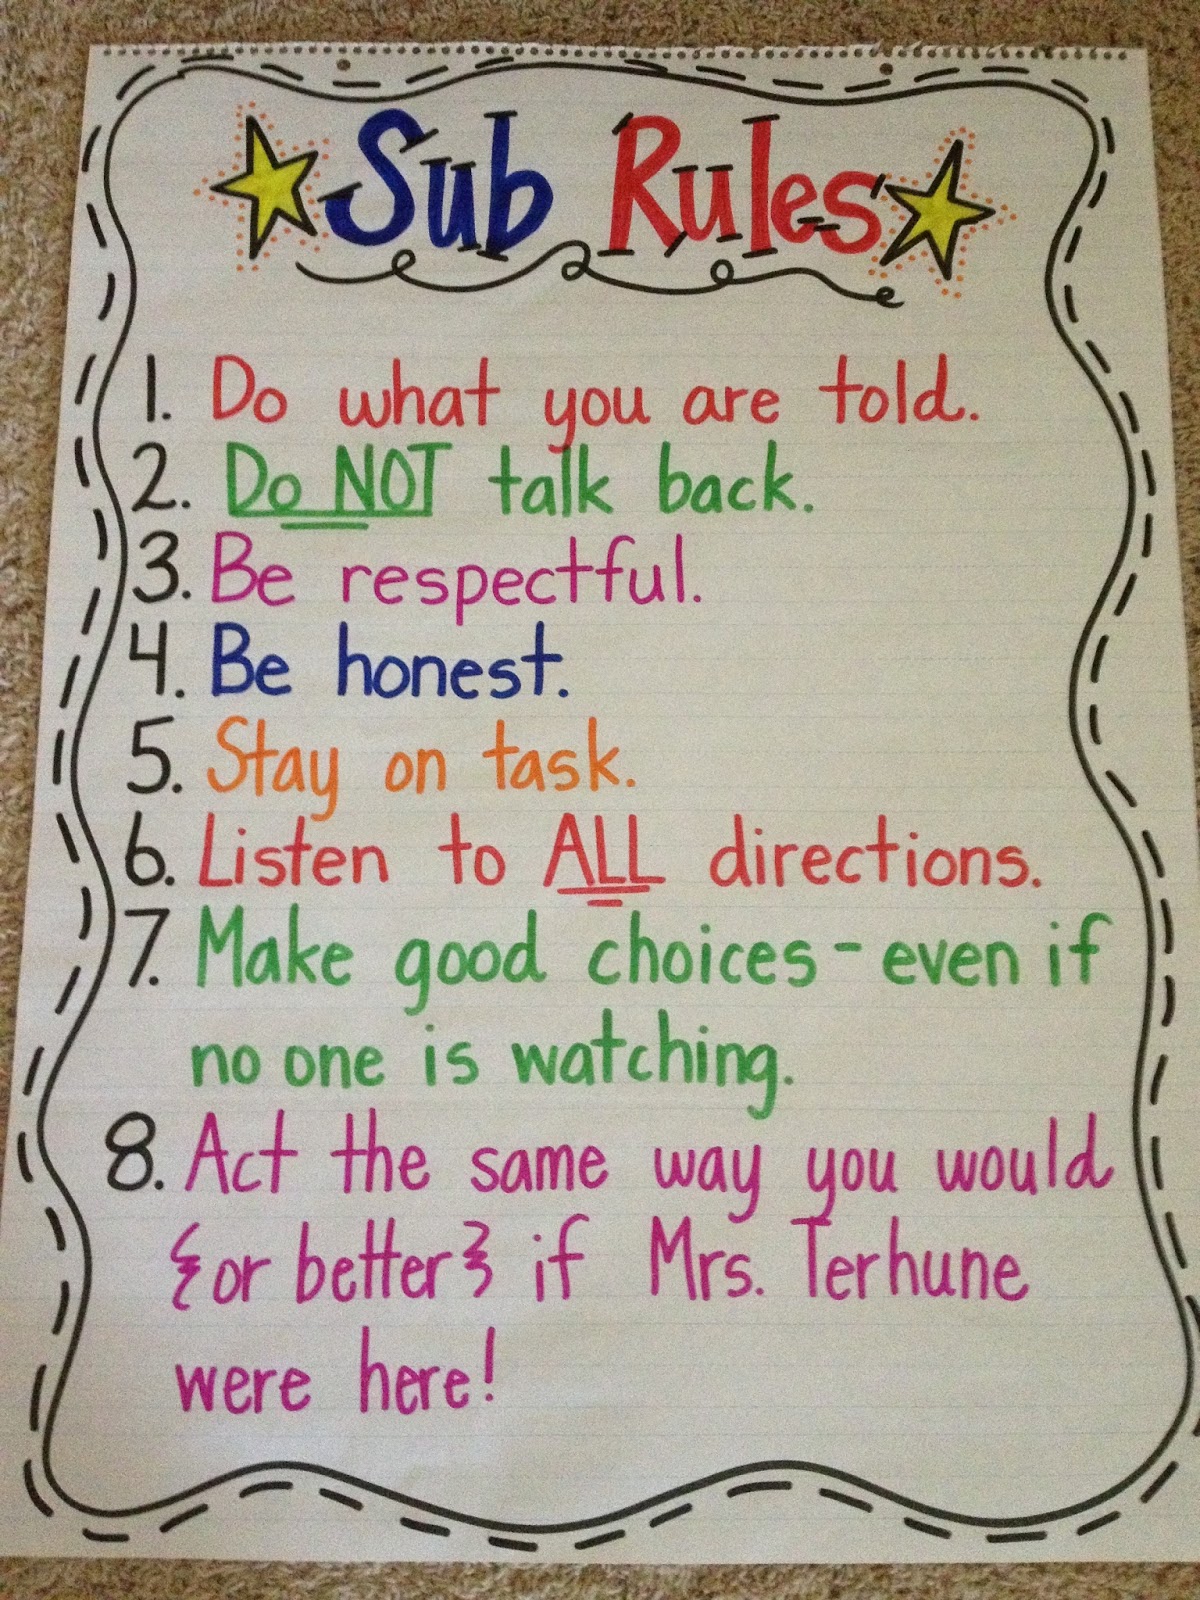 Sub Rules
1. Do what you are told.
2. Do NOT talk back.
3. Be respectful.
4. Be honest.
5. Stay on task.
6. Listen to ALL directions.
7. Make good choices - even if
no one is watching.
8. Act the same way you would
{or better} if Mrs. Terhune
were here!